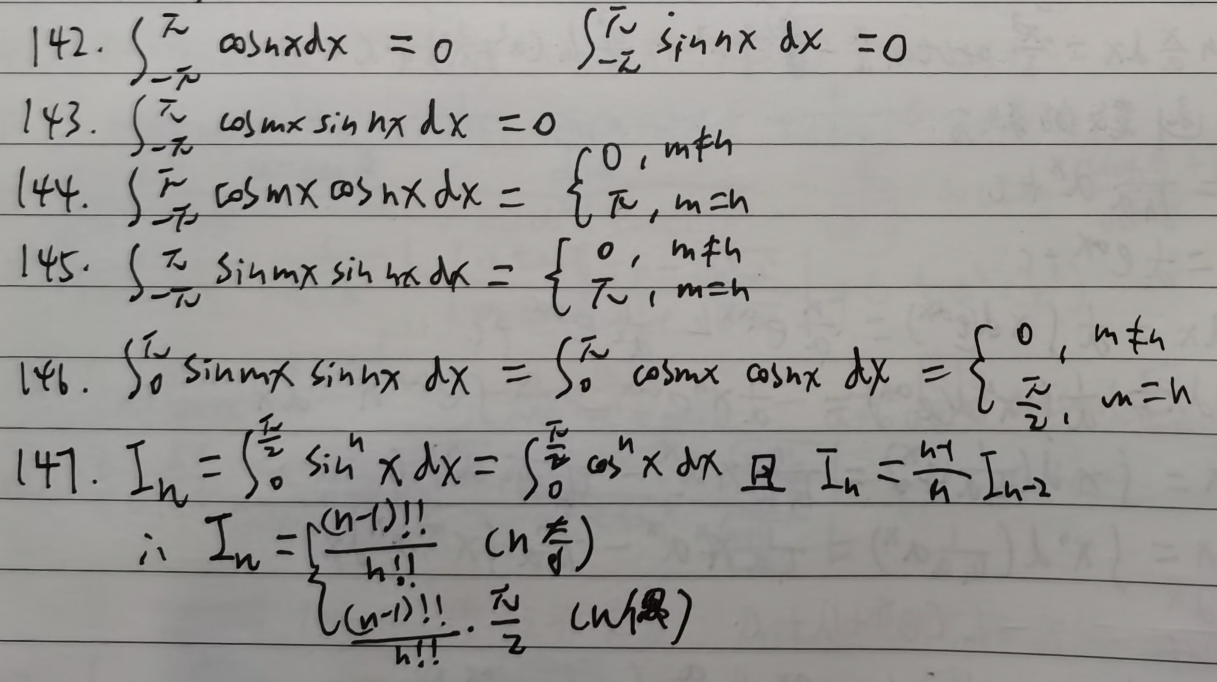 142. ∫_{-π}^{π} cosnxdx = 0  ∫_{-π}^{π} sinnx dx = 0
143. ∫_{-π}^{π} cosmx sin nx dx = 0
144. ∫_{-π}^{π} cosmx cosnx dx = { 0, m≠n ; π, m=n
145. ∫_{-π}^{π} sinmx sin nx dx = { 0, m≠n ; π, m=n
146. ∫_{0}^{π} sinmx sinnx dx = ∫_{0}^{π} cosmx cosnx dx = { 0, m≠n ; π/2, m=n
147. I_n = ∫_{0}^{π/2} sin^n x dx = ∫_{0}^{π/2} cos^n x dx 且 I_n = (n-1)/n I_{n-2}
∴ I_n = { (n-1)!!/n!! (n奇)
(n-1)!!/n!! · π/2 (n偶)